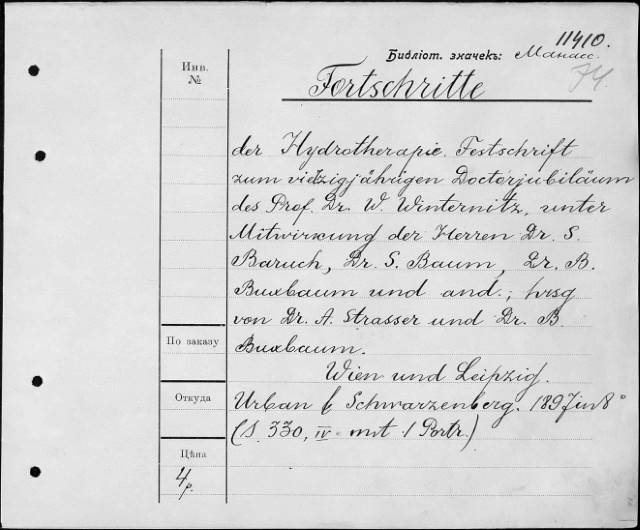 11410.
Библіот. значекъ: Манасс.
74.
Инв.
№
Fortschritte
der Hydrotherapie. Festschrift
zum vierzigjährigen Doctorjubiläum
des Prof. Dr. W. Winternitz, unter
Mitwirkung der Herren Dr. S.
Baruch, Dr. S. Baum, Dr. B.
Buxbaum und and.; hrsg
von Dr. A. Strasser und Dr. B.
Buxbaum.
По заказу
Wien und Leipzig.
Откуда
Urban & Schwarzenberg. 1897 in 8°
(S. 330, IV mit 1 Portr.)
Цѣна
4 р.